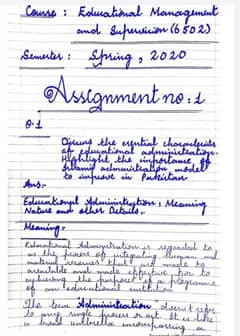 Course : Educational Management
and Supervision (6502)
Semester : Spring, 2020
Assignment no : 1
Q.1
Discuss the essential characteristics
of educational administration.
Highlight the importance of
Islamic administration model
to improve in Pakistan
Ans:-
Educational Administration ; Meaning
Nature and other Details.
Meaning:-
Educational Administration is regarded to
as the process of integrating Human and
material resources that is and made to
available and made effective for to
achieving the purposes of a programme
of an educational institution.
The term "Administration" doesn't refer
to any single process or act. It is like
a broad umbrella encompassing a